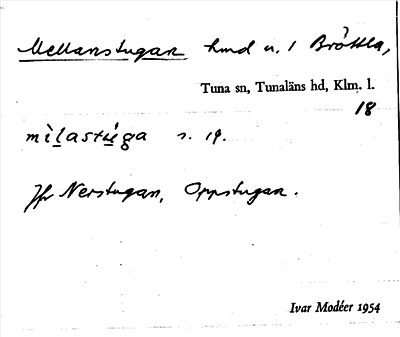 Mellanstugan hmd n. 1 Bröttla,
Tuna sn, Tunaläns hd, Klm. l.
18
mìlastúga s. 19.
Jfr Nerstugan, Oppstugan.
Ivar Modéer 1954